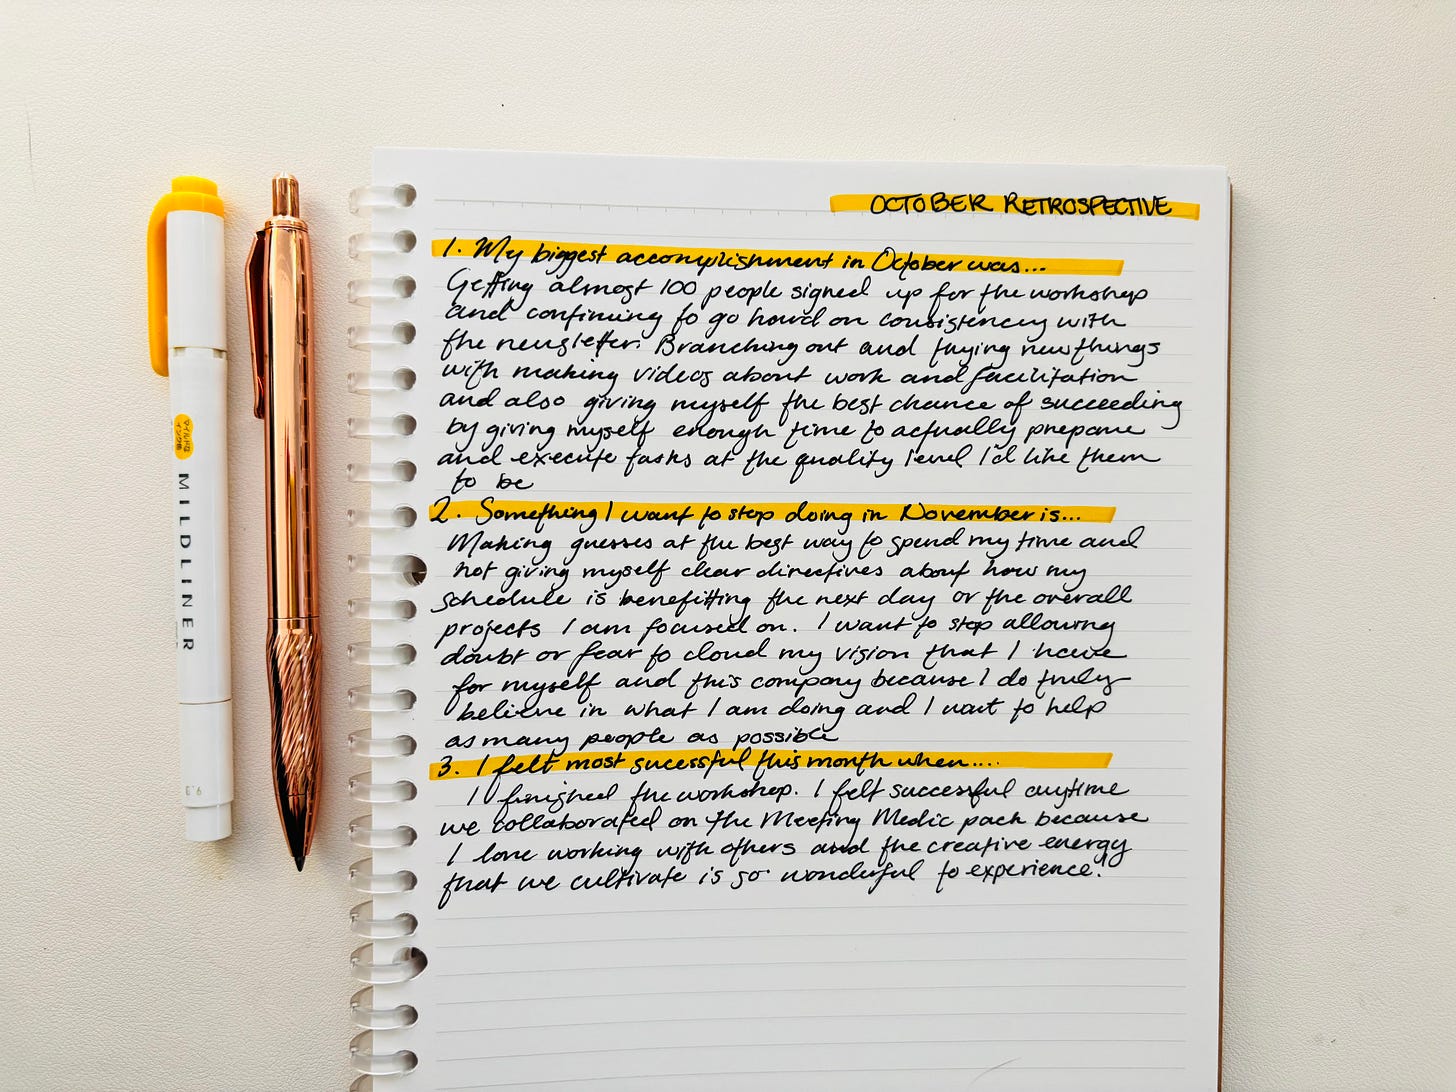 OCTOBER RETROSPECTIVE
1. My biggest accomplishment in October was...
Getting almost 100 people signed up for the workshop
and continuing to go hard on consistency with
the newsletter. Branching out and trying new things
with making videos about work and facilitation
and also giving myself the best chance of succeeding
by giving myself enough time to actually prepare
and execute tasks at the quality level I'd like them
to be
2. Something I want to stop doing in November is...
Making guesses at the best way to spend my time and
not giving myself clear directives about how my
schedule is benefitting the next day or the overall
projects I am focused on. I want to stop allowing
doubt or fear to cloud my vision that I have
for myself and this company because I do truly
believe in what I am doing and I want to help
as many people as possible
3. I felt most sucessful this month when....
I finished the workshop. I felt successful anytime
we collaborated on the Meeting Medic pack because
I love working with others and the creative energy
that we cultivate is so wonderful to experience!
MILDLINER